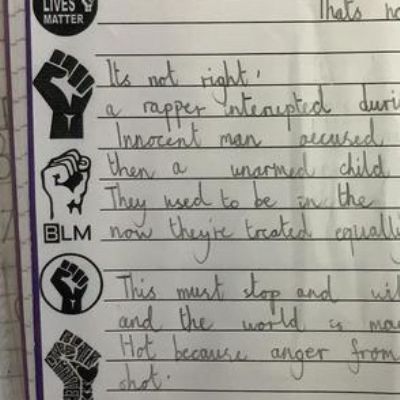 LIVES
MATTER
Thats
Its not right,
a rapper interupted
Innocent man accused
then a unarmed child
They used to be in the
BLM
now they're treated equally
This must stop and
and the world is
Hot because anger from
shot.